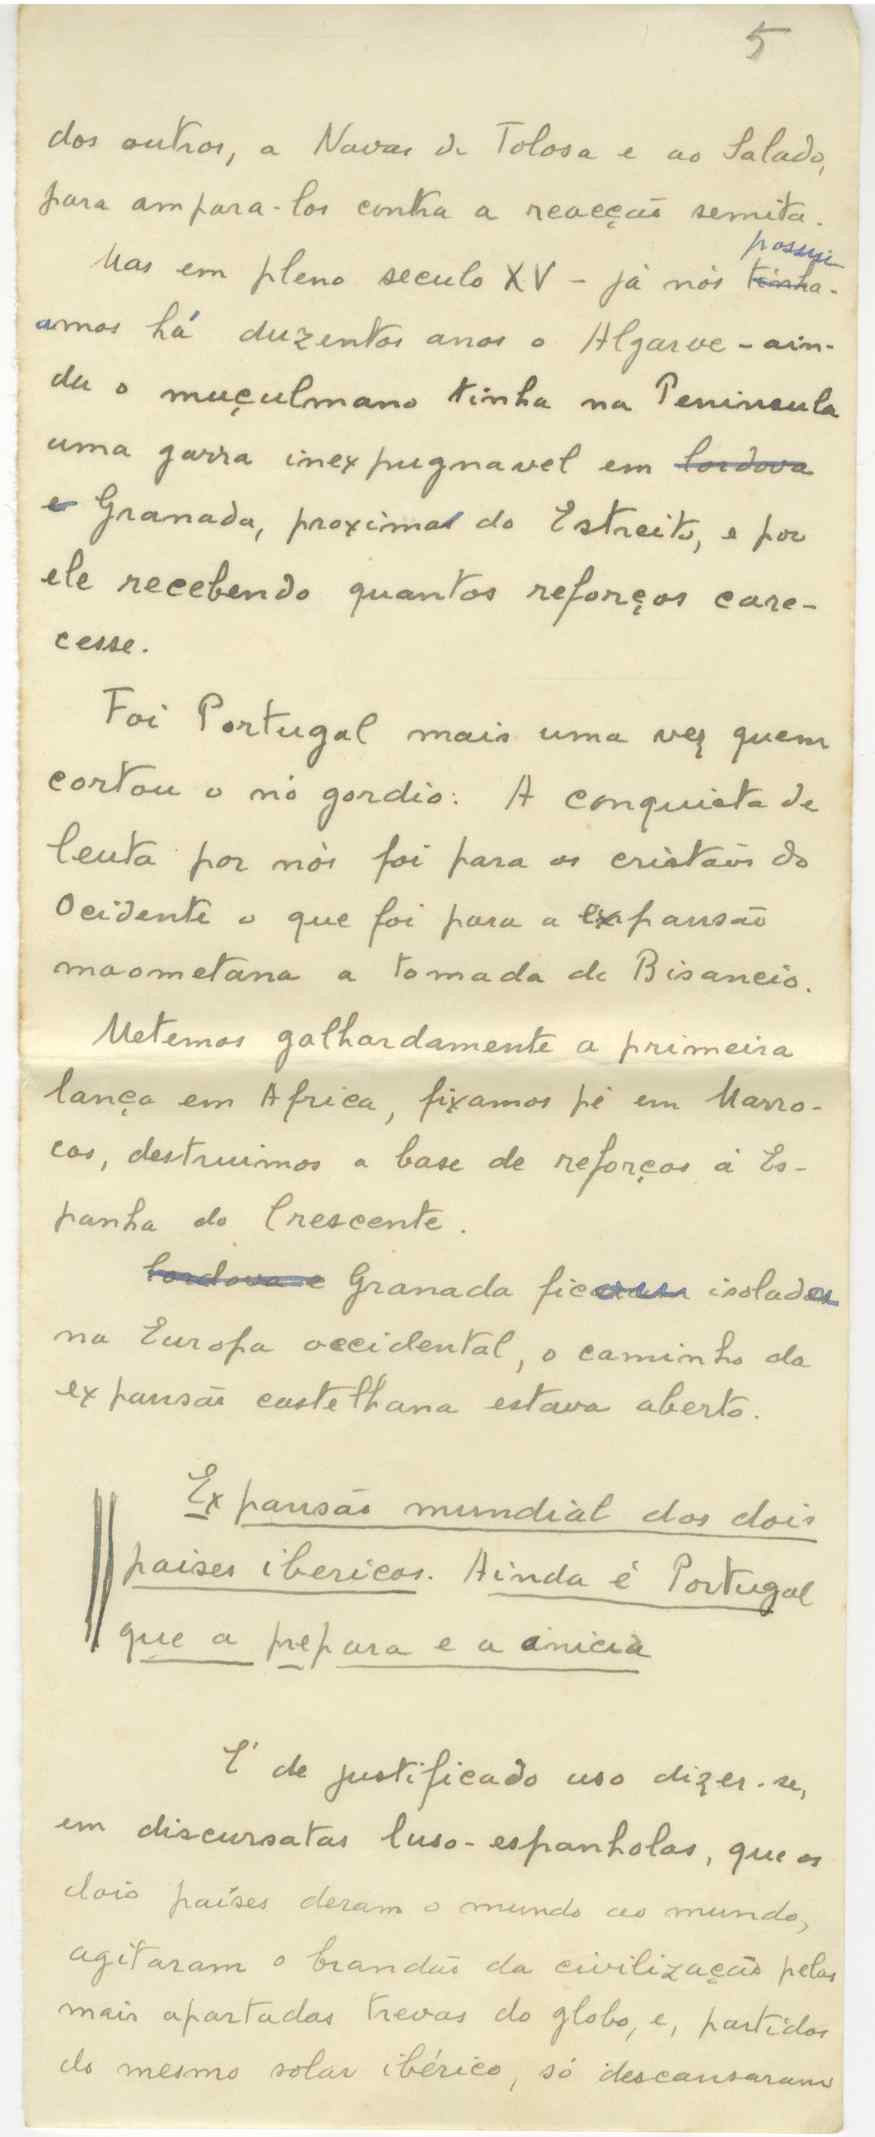 5
dos outros, a Navas de Tolosa e ao Salado,
para ampara-los contra a reacção semita.
possui
Mas em pleno seculo XV - já nós tinha-
amos há duzentos anos o Algarve - ain-
da o muçulmano tinha na Peninsula
uma garra inexpugnavel em Cordova
e Granada, proxima do Estreito, e por
ele recebendo quantos reforços care-
cesse.
Foi Portugal mais uma vez quem
cortou o nó gordio: A conquista de
Ceuta por nós foi para os cristãos do
Ocidente o que foi para a expansão
maometana a tomada de Bisancio.
Metemos galhardamente a primeira
lança em Africa, fixamos pé em Marro-
cos, destruimos a base de reforços á Es-
panha do Crescente.
Cordova e Granada ficaram isolada
na Europa occidental, o caminho da
expansão castelhana estava aberto.
Expansão mundial dos dois
paises ibericos. Ainda é Portugal
que a prepara e a inicia
É de justificado uso dizer-se,
em discursatas luso-espanholas, que os
dois países deram o mundo ao mundo,
agitaram o brandão da civilização pelas
mais apartadas trevas do globo, e, partidos
do mesmo solar ibérico, só descansaram